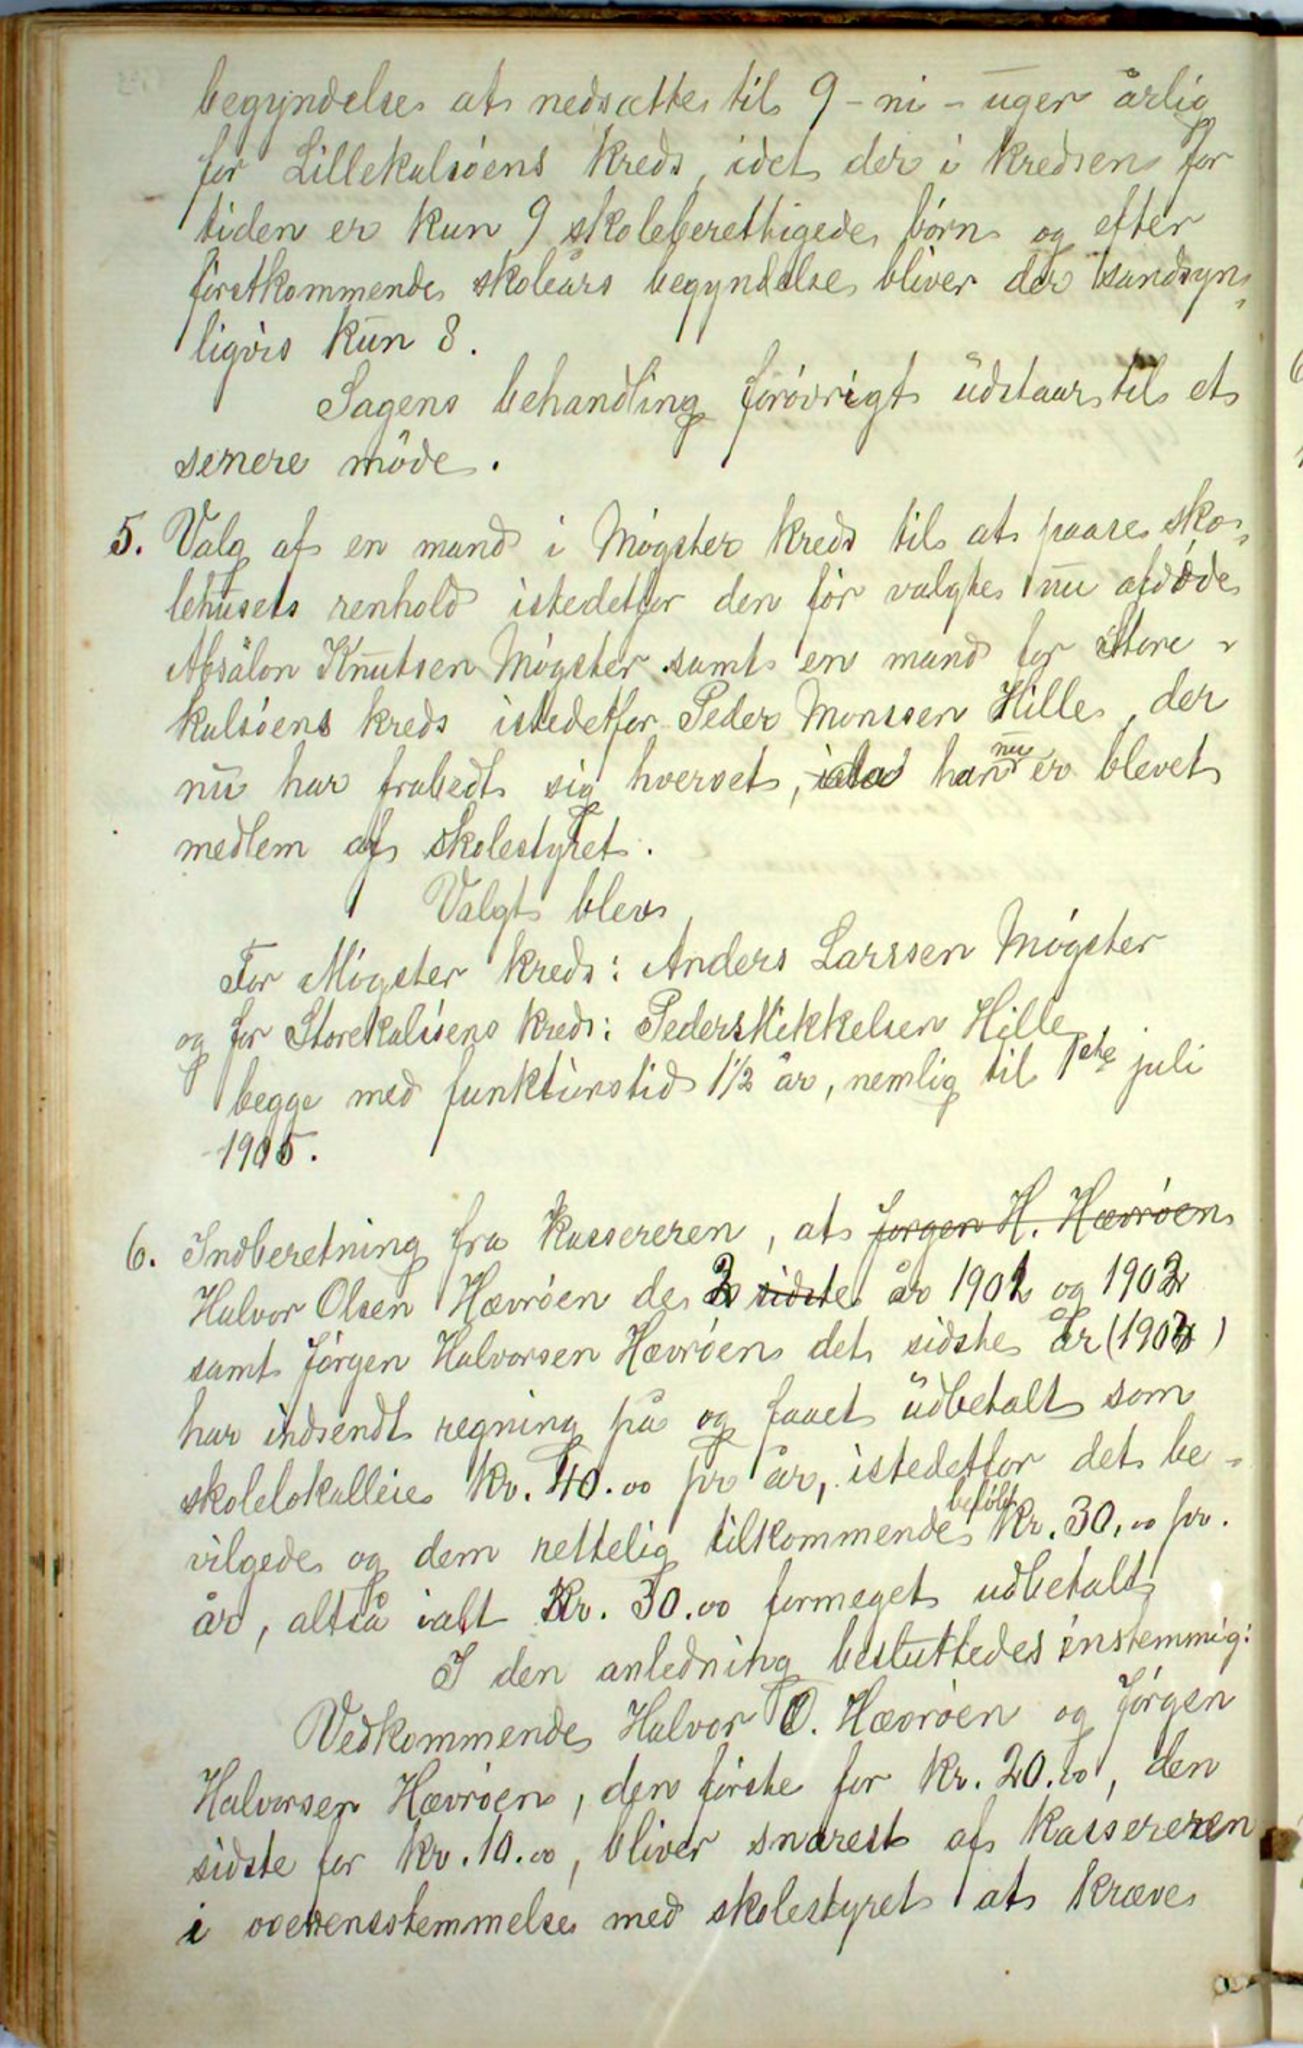 begyndelse at nedsætte til 9 - ni - uger årlig
for Lillekalsöens kreds, idet der i kredsen for
tiden er kun 9 skoleberettigede börn og efter
förstkommende skoleårs begyndelse bliver der sandsyn-
ligvis kun 8.
Sagens behandling forövrigt udstaar til et
senere möde.
5. Valg af en mand i Mögster kreds til at paase sko-
lehusets renhold istedetfor den för valgte nu afdöde
Absalon Knutsen Mögster samt en mand for Store-
kalsöens kreds istedetfor Peder Monssen Hille, der
nu har frabedt sig hvervet, han nu er blevet
medlem af skolestyret.
Valgt blev
For Mögster kreds: Anders Larssen Mögster
og for Storekalsöens kreds: Peder Mikkelsen Hille,
begge med funktionstid 1 1/2 år, nemlig til 1ste juli
1905.
6. Indberetning fra kassereren, at Jørgen H. Hævröen
Halvor Olsen Hævröen de 2 sidste år 1901 og 1902
samt Jörgen Halvorsen Hævröen det sidste år (1903)
har indsendt regning på og faaet udbetalt som
skolelokalleie kr. 40.00 pr år, istedetfor det be-
vilgede og dem rettelig tilkommende belöb kr. 30,00 pr.
år, altså ialt Kr. 30.00 formeget udbetalt
I den anledning besluttedes enstemmig:
Vedkommende Halvor O. Hævröen og Jörgen
Halvorsen Hævröen, den förste for kr. 20.00, den
sidste for kr. 10.00, bliver snarest af kassereren
i overensstemmelse med skolestyret at kræve